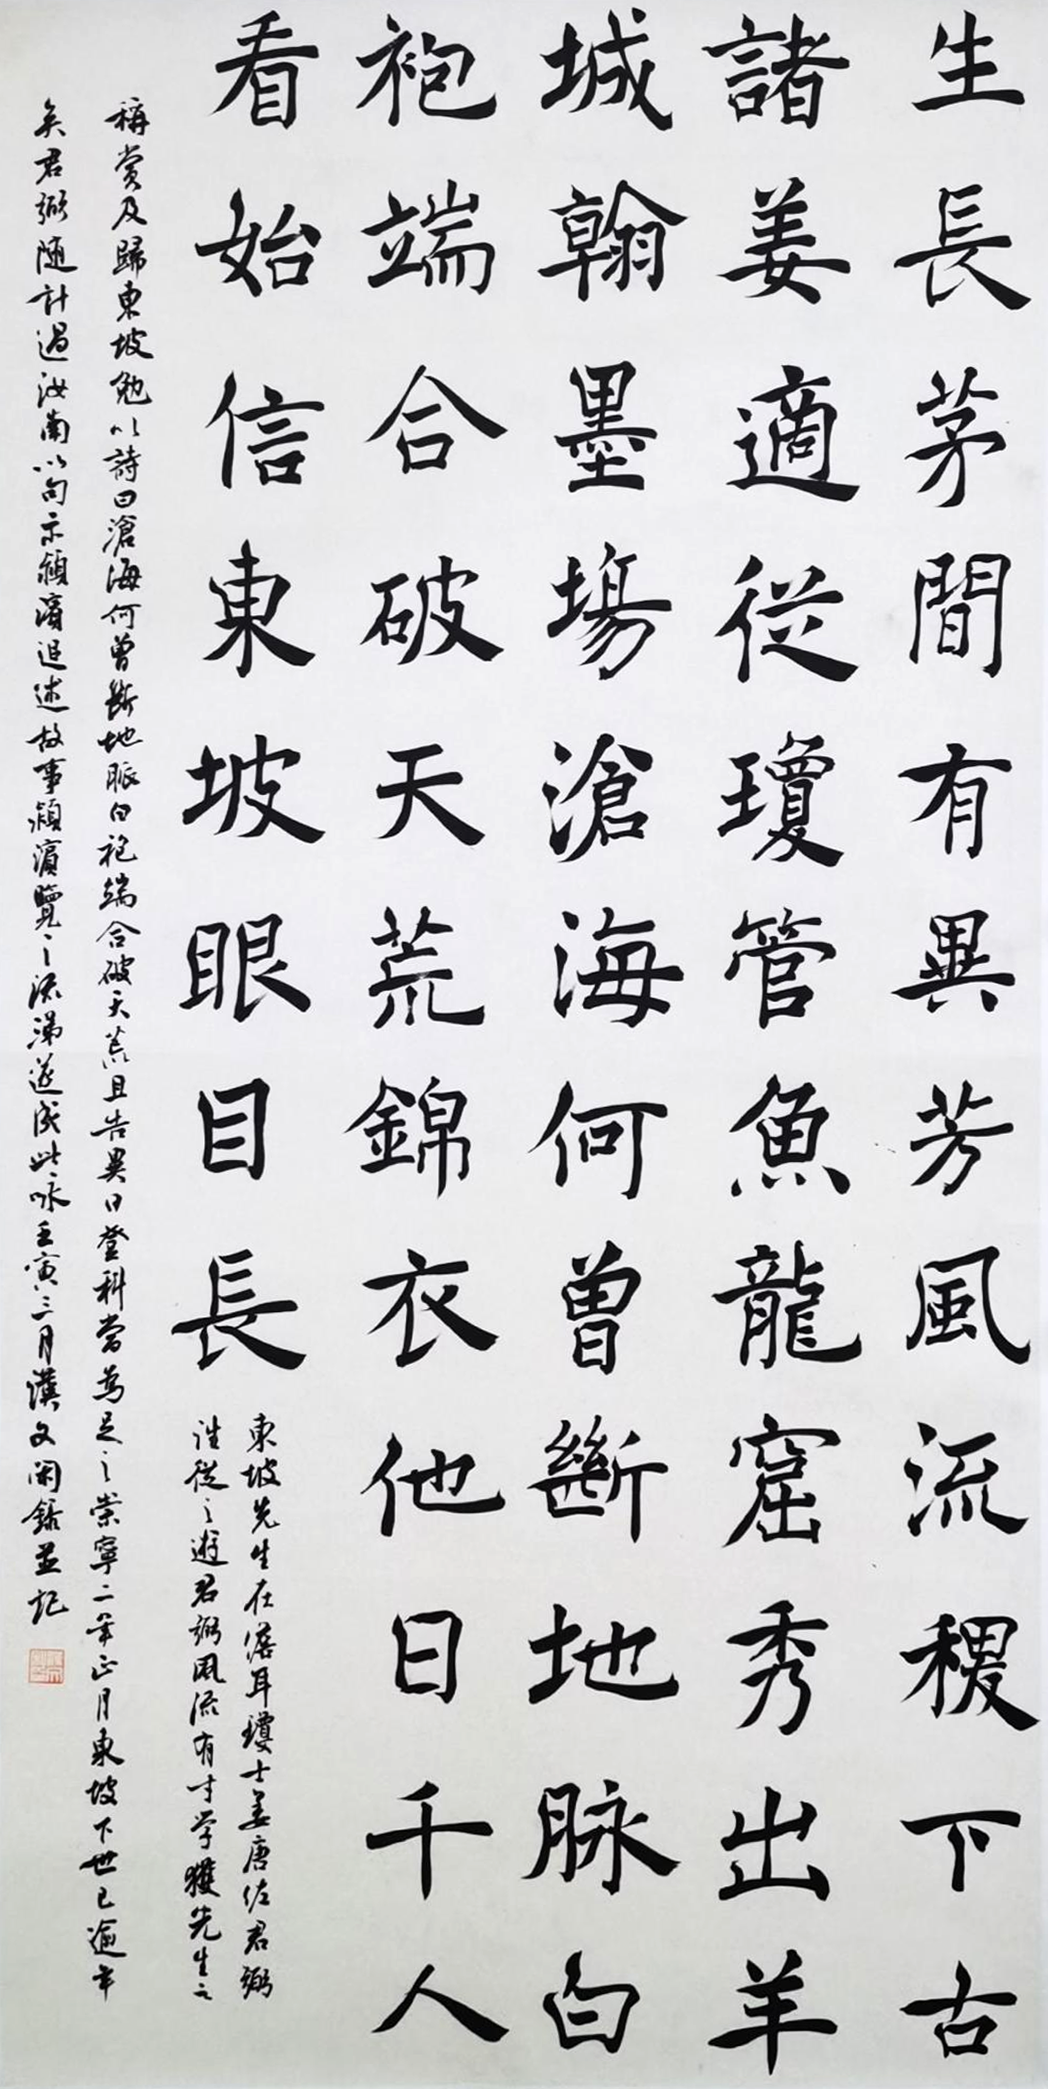 生長茅間有異芳風流稷下古
諸姜適從瓊管魚龍窟秀出羊
城翰墨場滄海何曾斷地脉白
袍端合破天荒錦衣他日千人
看始信東坡眼目長
東坡先生在儋耳瓊士姜唐佐君弼
往從之遊君弼風流有才学獲先生之
稱赏及歸東坡勉以詩曰滄海何曾斷地脈白袍端合破天荒且告異日登科當為足之崇寧二年正月東坡下世已逾年
矣君弼随计過汝南以句示潁濱追述故事潁濱覽之流涕遂成此咏壬寅三月漢文閑錄並記